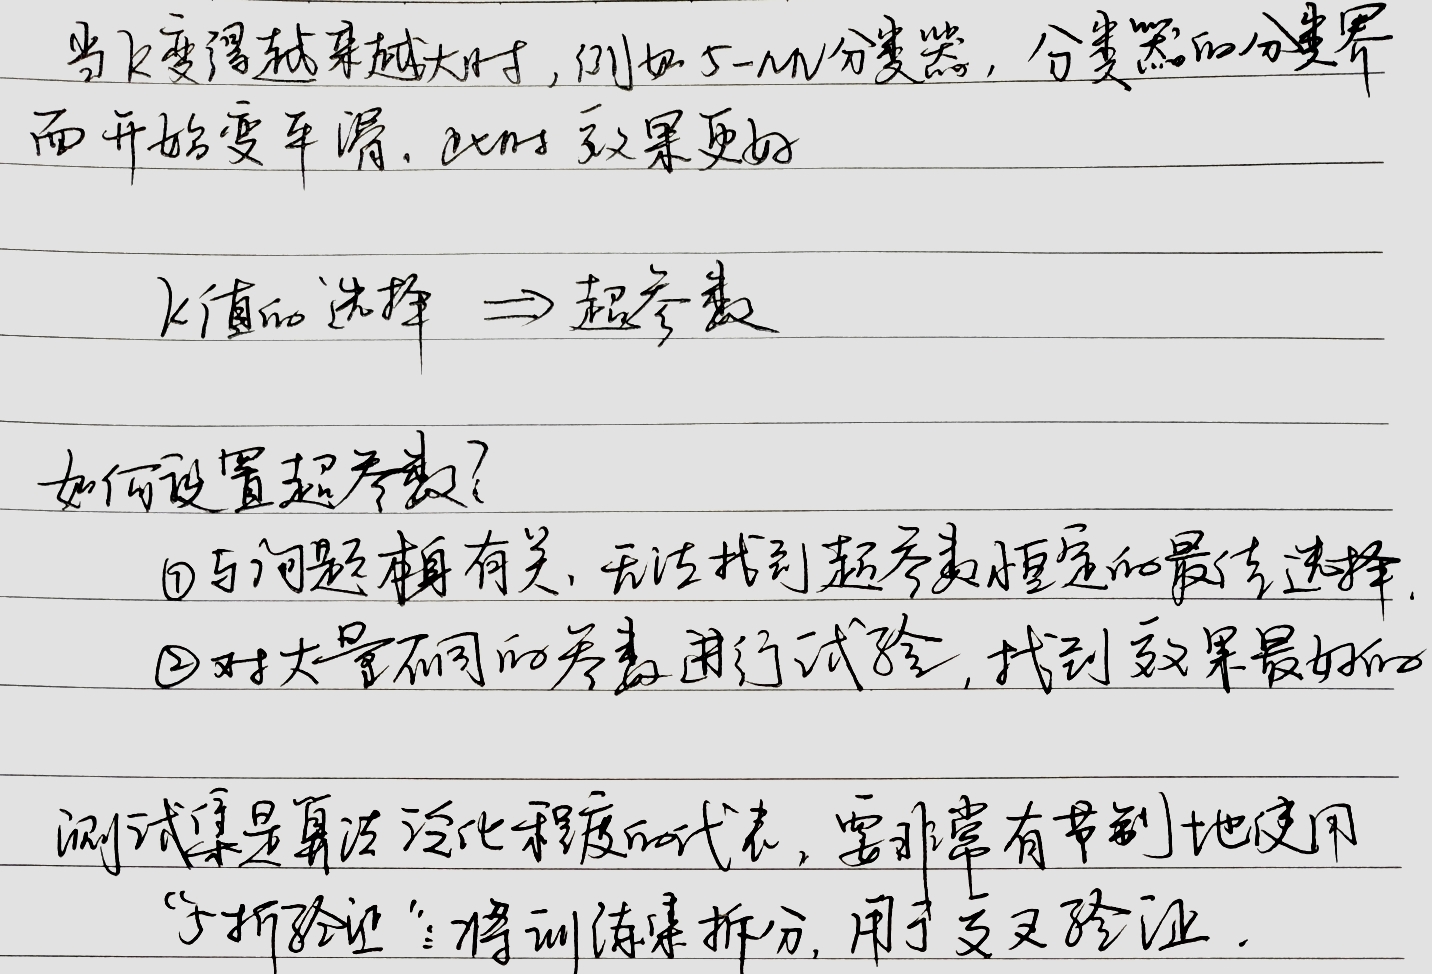 当k变得越来越大时,例如5-NN分类器,分类器的分类界
面开始变平滑.此时效果更好
k值的选择 ⇒ 超参数
如何设置超参数?
①与问题本身有关.无法找到超参数恒定的最佳选择.
②对大量不同的参数进行试验,找到效果最好的
测试集是算法泛化程度的代表,要非常有节制地使用
“5折验证”:将训练集拆分,用于交叉验证.